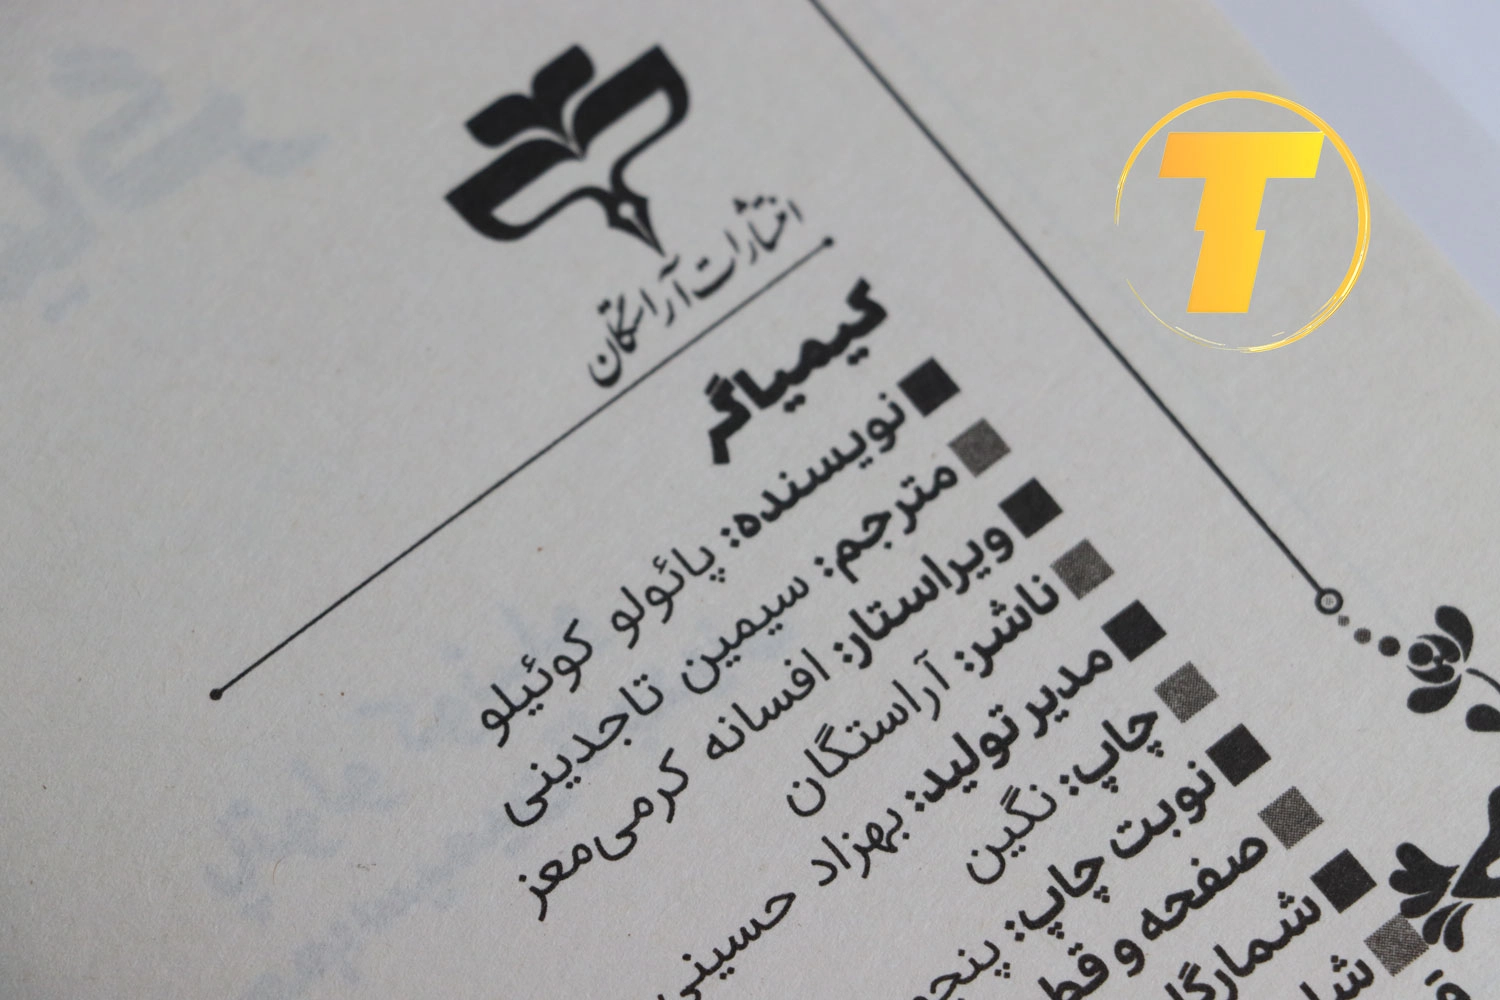 انتشارات آراستگان
کیمیاگر
نویسنده: پائولو کوئیلو
مترجم: سیمین تاجدینی
ویراستار: افسانه کرمی‌معز
ناشر: آراستگان
مدیر تولید: بهزاد حسینی
چاپ: نگین
نوبت چاپ:
صفحه و
T